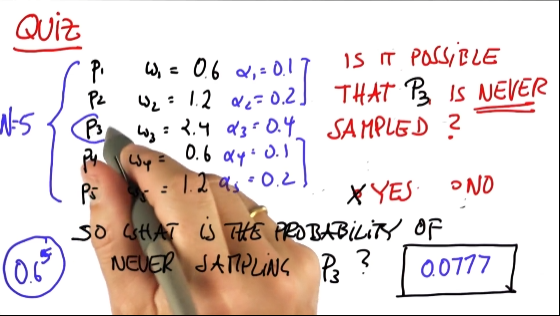 QUIZ
N=5
P1 ω1 = 0.6 α1 = 0.1
P2 ω2 = 1.2 α2 = 0.2
P3 ω3 = 2.4 α3 = 0.4
P4 ω4 = 0.6 α4 = 0.1
P5 = 1.2 α5 = 0.2
IS IT POSSIBLE
THAT P3 IS NEVER
SAMPLED ?
YES NO
SO WHAT IS THE PROBABILITY OF
NEVER SAMPLING P3 ?
0.6^5
0.0777